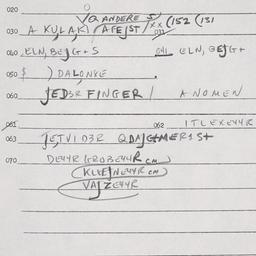 020
VQ ANDERE S
030 A KULAK (AFEJST/xx (152 (131
031
040 ELN, BEJG+S 041 ELN, BEJG+
050 $ ) DALONKE
060 JED3R FINGER / A NOMEN
061 062 ITLEXEYYR
063 JETVID3R QDAJGMER1S+
070 DEYYR GROBEYYR CM)
KLEJNEYYR CM)
VAJZEYYR